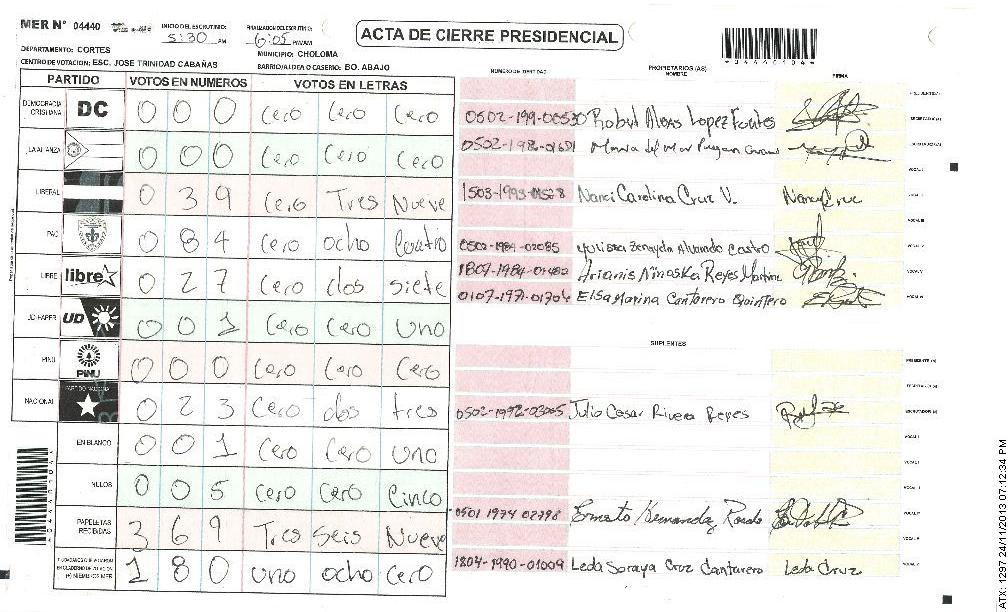 MER N° 04440 INICIO DEL ESCRUTINIO: 5:30 PM 6:05 PM/AM
ACTA DE CIERRE PRESIDENCIAL
DEPARTAMENTO: CORTES MUNICIPIO: CHOLOMA
CENTRO DE VOTACION: ESC. JOSE TRINIDAD CABAÑAS BARRIO/ALDEA O CASERIO: BO. ABAJO
*04440104*
PARTIDO VOTOS EN NUMEROS VOTOS EN LETRAS
NUMERO DE IDENTIDAD PROPIETARIOS (AS) NOMBRE FIRMA
DEMOCRACIA CRISTIANA DC 0 0 0 Cero Cero Cero
LA ALIANZA 0 0 0 Cero Cero Cero
LIBERAL 0 3 9 Cero Tres Nueve
PAC 0 8 4 Cero ocho Cuatro
LIBRE libre 0 2 7 Cero dos siete
UD-FAPER UD 0 0 1 Cero Cero Uno
PINU PINU 0 0 0 Cero Cero Cero
NACIONAL 0 2 3 Cero dos tres
EN BLANCO 0 0 1 Cero Cero Uno
NULOS 0 0 5 Cero Cero Cinco
PAPELETAS RECIBIDAS 3 6 9 Tres Seis Nueve
1 8 0 uno ocho Cero
Lopez Fontes
1503-1993- Nanci Carolina Cruz V. Nancy Cruz
0502-1984-02085 Alvarado Castro
1807-1984- Reyes
0107-1971-01704 Elsa Marina Cantarero Quintero
SUPLENTES
0502-1992-03065 Julio Cesar Rivera Reyes
0501 1974 02798 Ernesto
1804-1990-01009 Leda Soraya Cruz Cantarero Leda Cruz
ATX: 1297 24/11/2013 07:12:34 PM